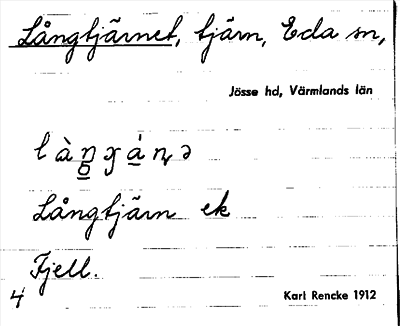 Långtjärnet, tjärn, Eda sn,
Jösse hd, Värmlands län
Långtjärn ek
Fjell.
4
Karl Rencke 1912